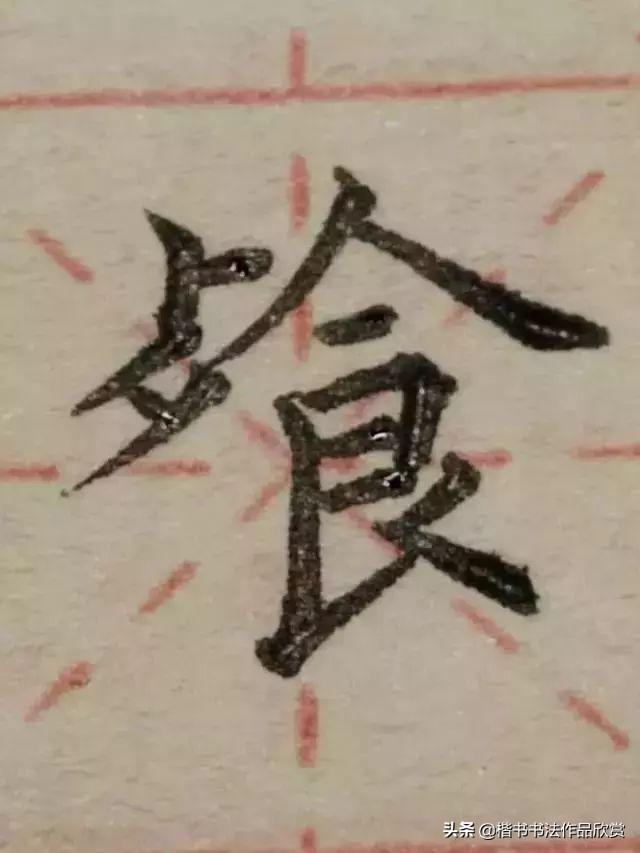 飱
头条 @楷书书法作品欣赏